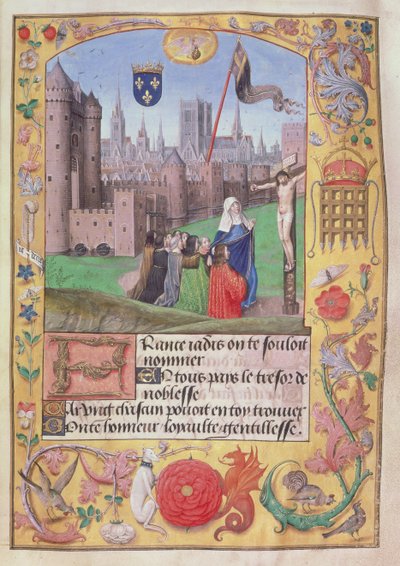 FRance iadis on te souloit
nommer
EN tous pays le tresor de
noblesse
CAr vng chascun pouoit en toy trouuer
BOnte honneur loyaulte gentillesse.